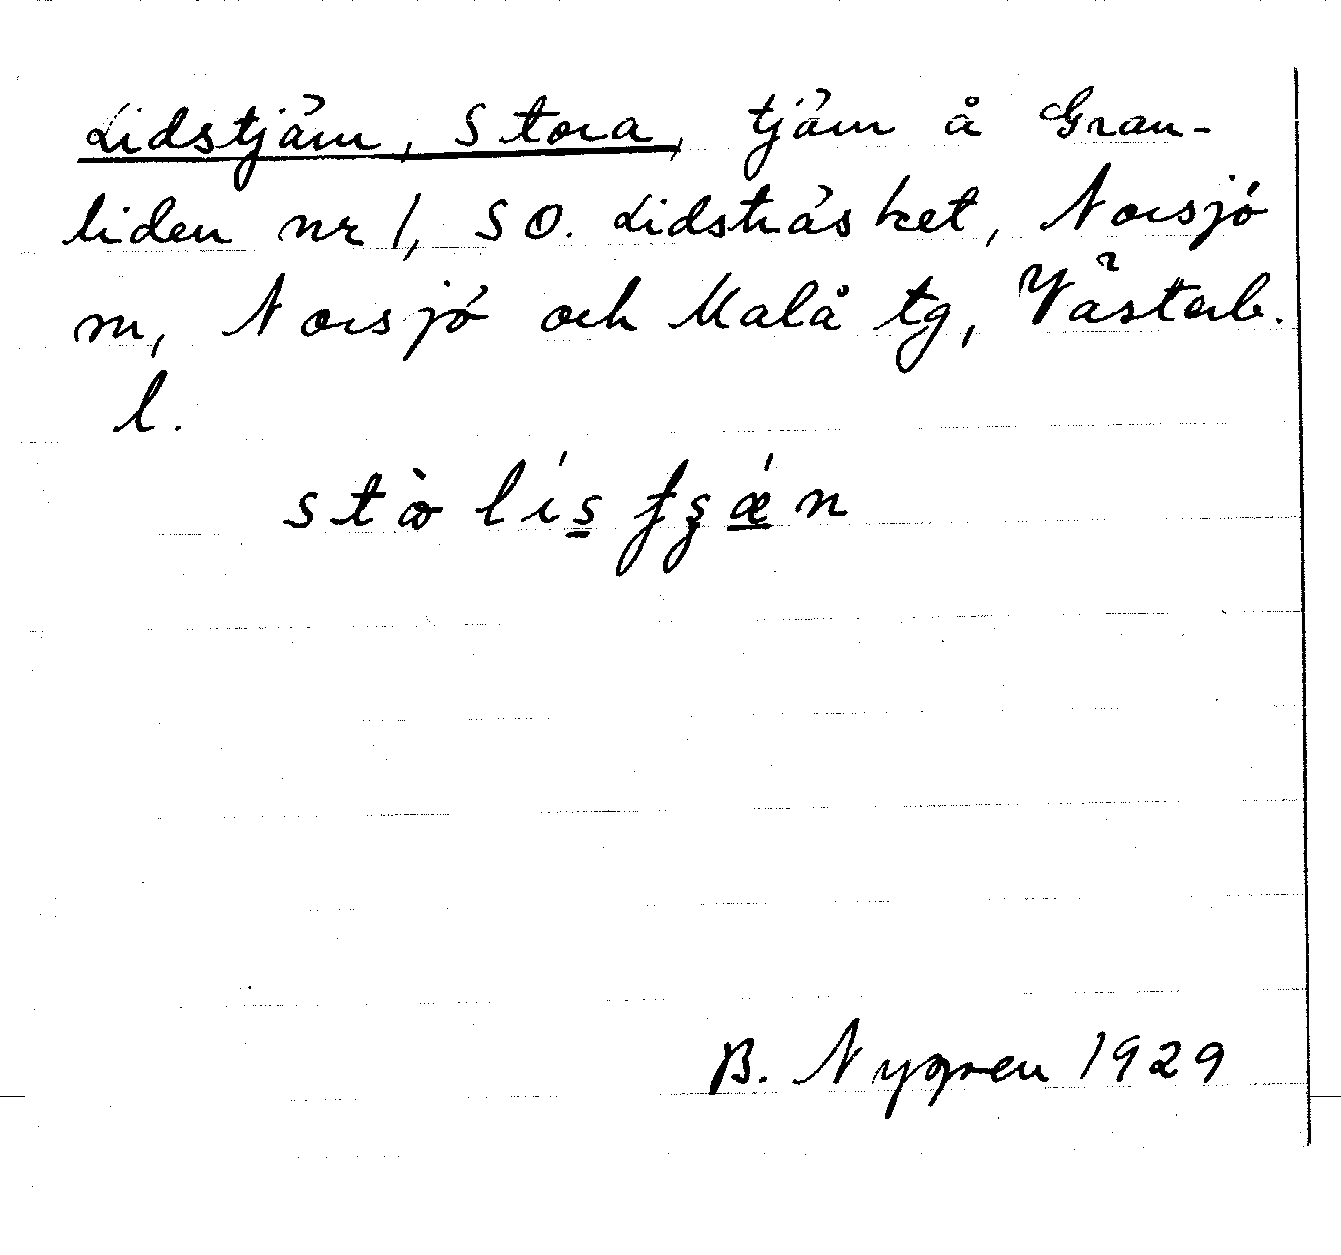 Lidstjärn, Stora, tjärn å Gran-
liden nr 1, SO. Lidsträsket, Norsjö
sn, Norsjö och Malå tg, Västerb.
l.
B. Nygren 1929